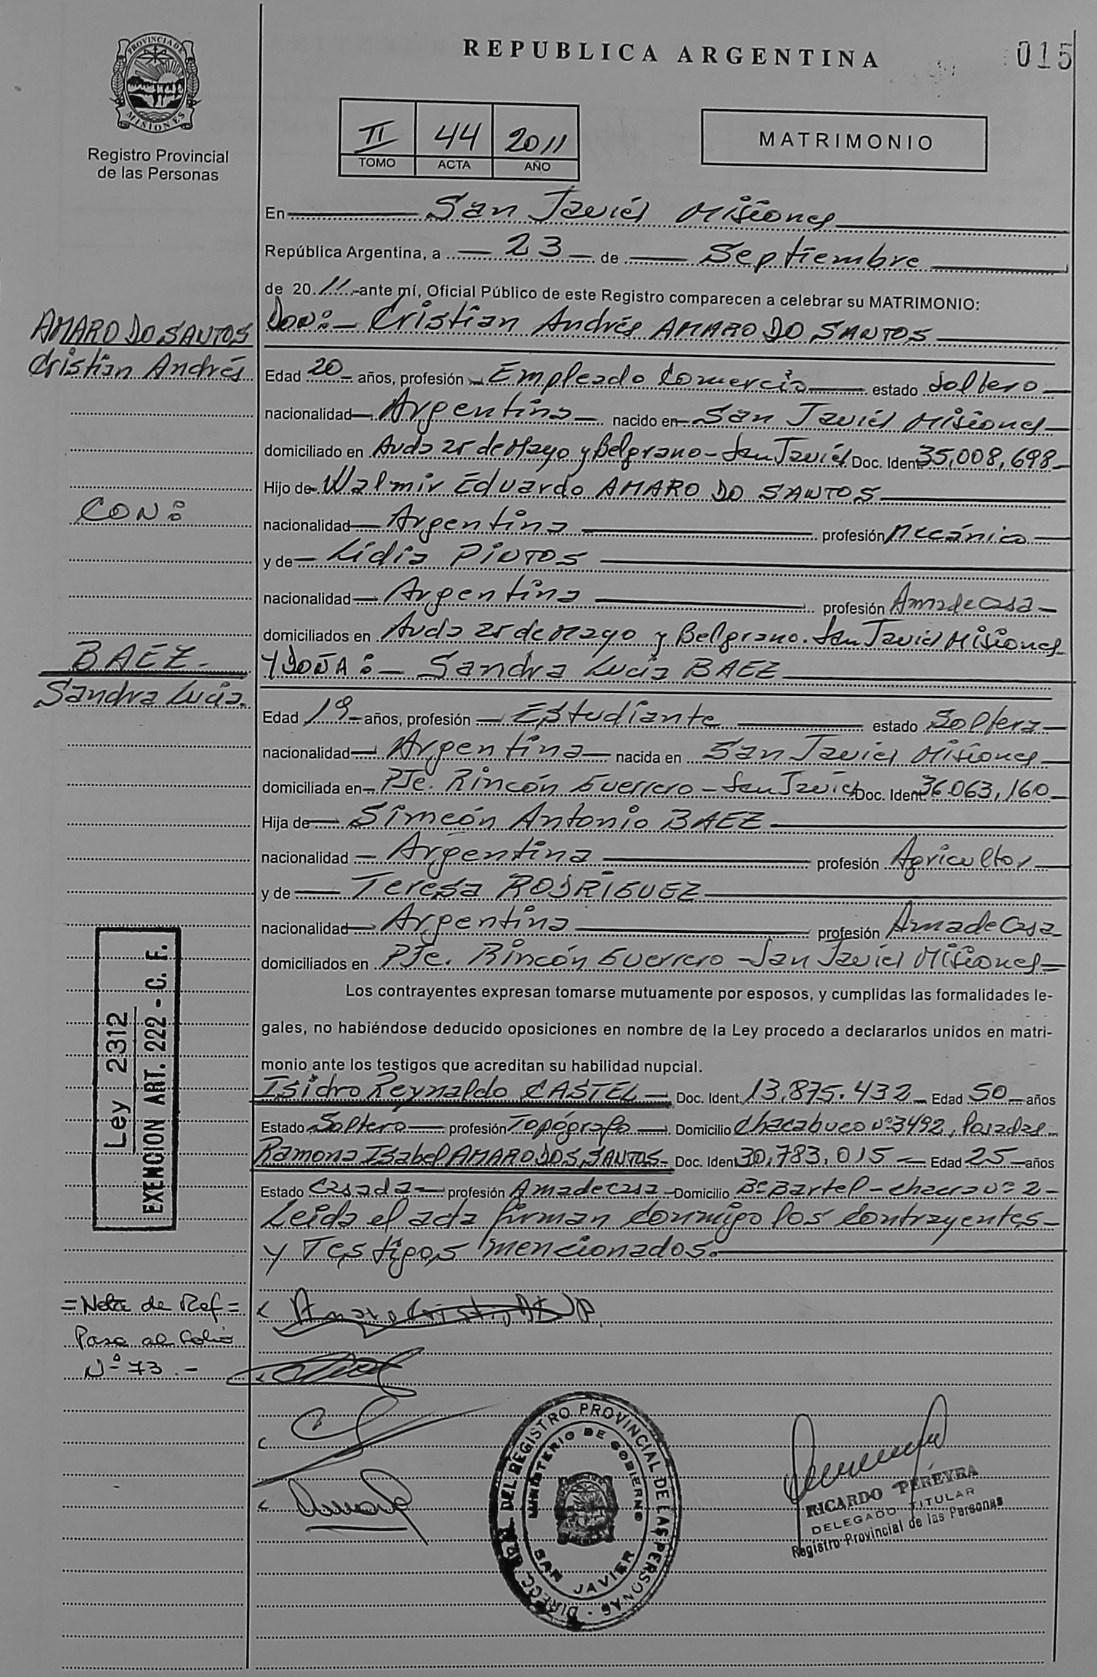 REPUBLICA ARGENTINA
015
PROVINCIA DE MISIONES
Registro Provincial
de las Personas
II 44 2011
TOMO ACTA AÑO
MATRIMONIO
En San Javier Misiones
República Argentina, a 23 de Septiembre
de 2011 ante mí, Oficial Público de este Registro comparecen a celebrar su MATRIMONIO:
AMARO DO SANTOS
Cristian Andrés
CON:
BAEZ.
Sandra Lucia.
DON:- Cristian Andrés AMARO DO SANTOS
Edad 20 años, profesión Empleado Comercio estado Soltero
nacionalidad Argentina nacido en San Javier Misiones
domiciliado en Avda 25 de Mayo y Belgrano - San Javier Doc. Ident 35,008,698
Hijo de Walmir Eduardo AMARO DO SANTOS
nacionalidad Argentina profesión Mecánico
y de Lidia PINTOS
nacionalidad Argentina profesión Ama de casa
domiciliados en Avda 25 de Mayo y Belgrano. San Javier Misiones
Y DOÑA:- Sandra Lucia BAEZ
Edad 19 años, profesión Estudiante estado Soltera
nacionalidad Argentina nacida en San Javier Misiones
domiciliada en Pje. Rincón Guerrero - San Javier Doc. Ident 36.063,160
Hija de Simeón Antonio BAEZ
nacionalidad Argentina profesión Agricultor
y de Teresa RODRIGUEZ
nacionalidad Argentina profesión Ama de Casa
domiciliados en Pje. Rincón Guerrero - San Javier Misiones
Los contrayentes expresan tomarse mutuamente por esposos, y cumplidas las formalidades le-
gales, no habiéndose deducido oposiciones en nombre de la Ley procedo a declararlos unidos en matri-
monio ante los testigos que acreditan su habilidad nupcial.
Isidro Reynaldo CASTEL Doc. Ident 13.875.432 Edad 50 años
Estado Soltero profesión Topógrafo Domicilio Chacabuco nº 3492, Posadas
Ramona Isabel AMARO DOS SANTOS Doc. Ident 30,783,015 Edad 25 años
Estado Casada profesión Ama de casa Domicilio Bº Bartel - chacra nº 2-
Leida el acta firman conmigo los contrayentes
y Testigos mencionados.
Ley 2312
EXENCION ART. 222 - C. F.
= Nota de Ref =
Pasa al folio
Nº 73.-
DIRECC. GRAL. DEL REGISTRO PROVINCIAL DE LAS PERSONAS
MINISTERIO DE GOBIERNO
SAN JAVIER
RICARDO PEREYRA
DELEGADO TITULAR
Registro Provincial de las Personas